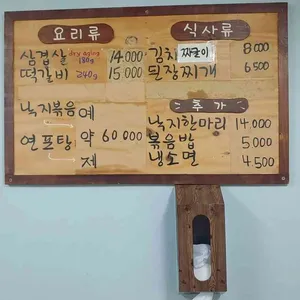 요리류
삼겹살 dry aging 180g 14.000
떡갈비 240g 15.000
낙지볶음 예
연포탕 약 60000
제
식사류
김치 짜글이 8000
된장찌개 6.500
추가
낙지한마리 14.000
볶음밥 5.000
냉소면 4500